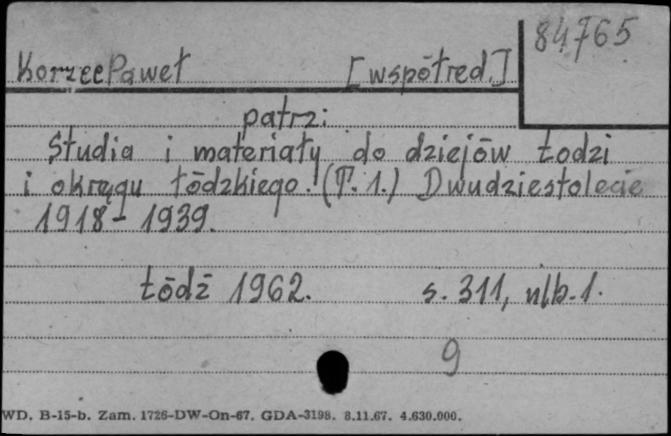 84765
Korzec Paweł [współred.]
patrz:
Studia i materiały do dziejów Łodzi
i okręgu łódzkiego. (T. 1.) Dwudziestolecie
1918 - 1939.
Łódź 1962. s. 311, nlb. 1.
9
WD. B-15-b. Zam. 1726-DW-On-67. GDA-3198. 8.11.67. 4.630.000.